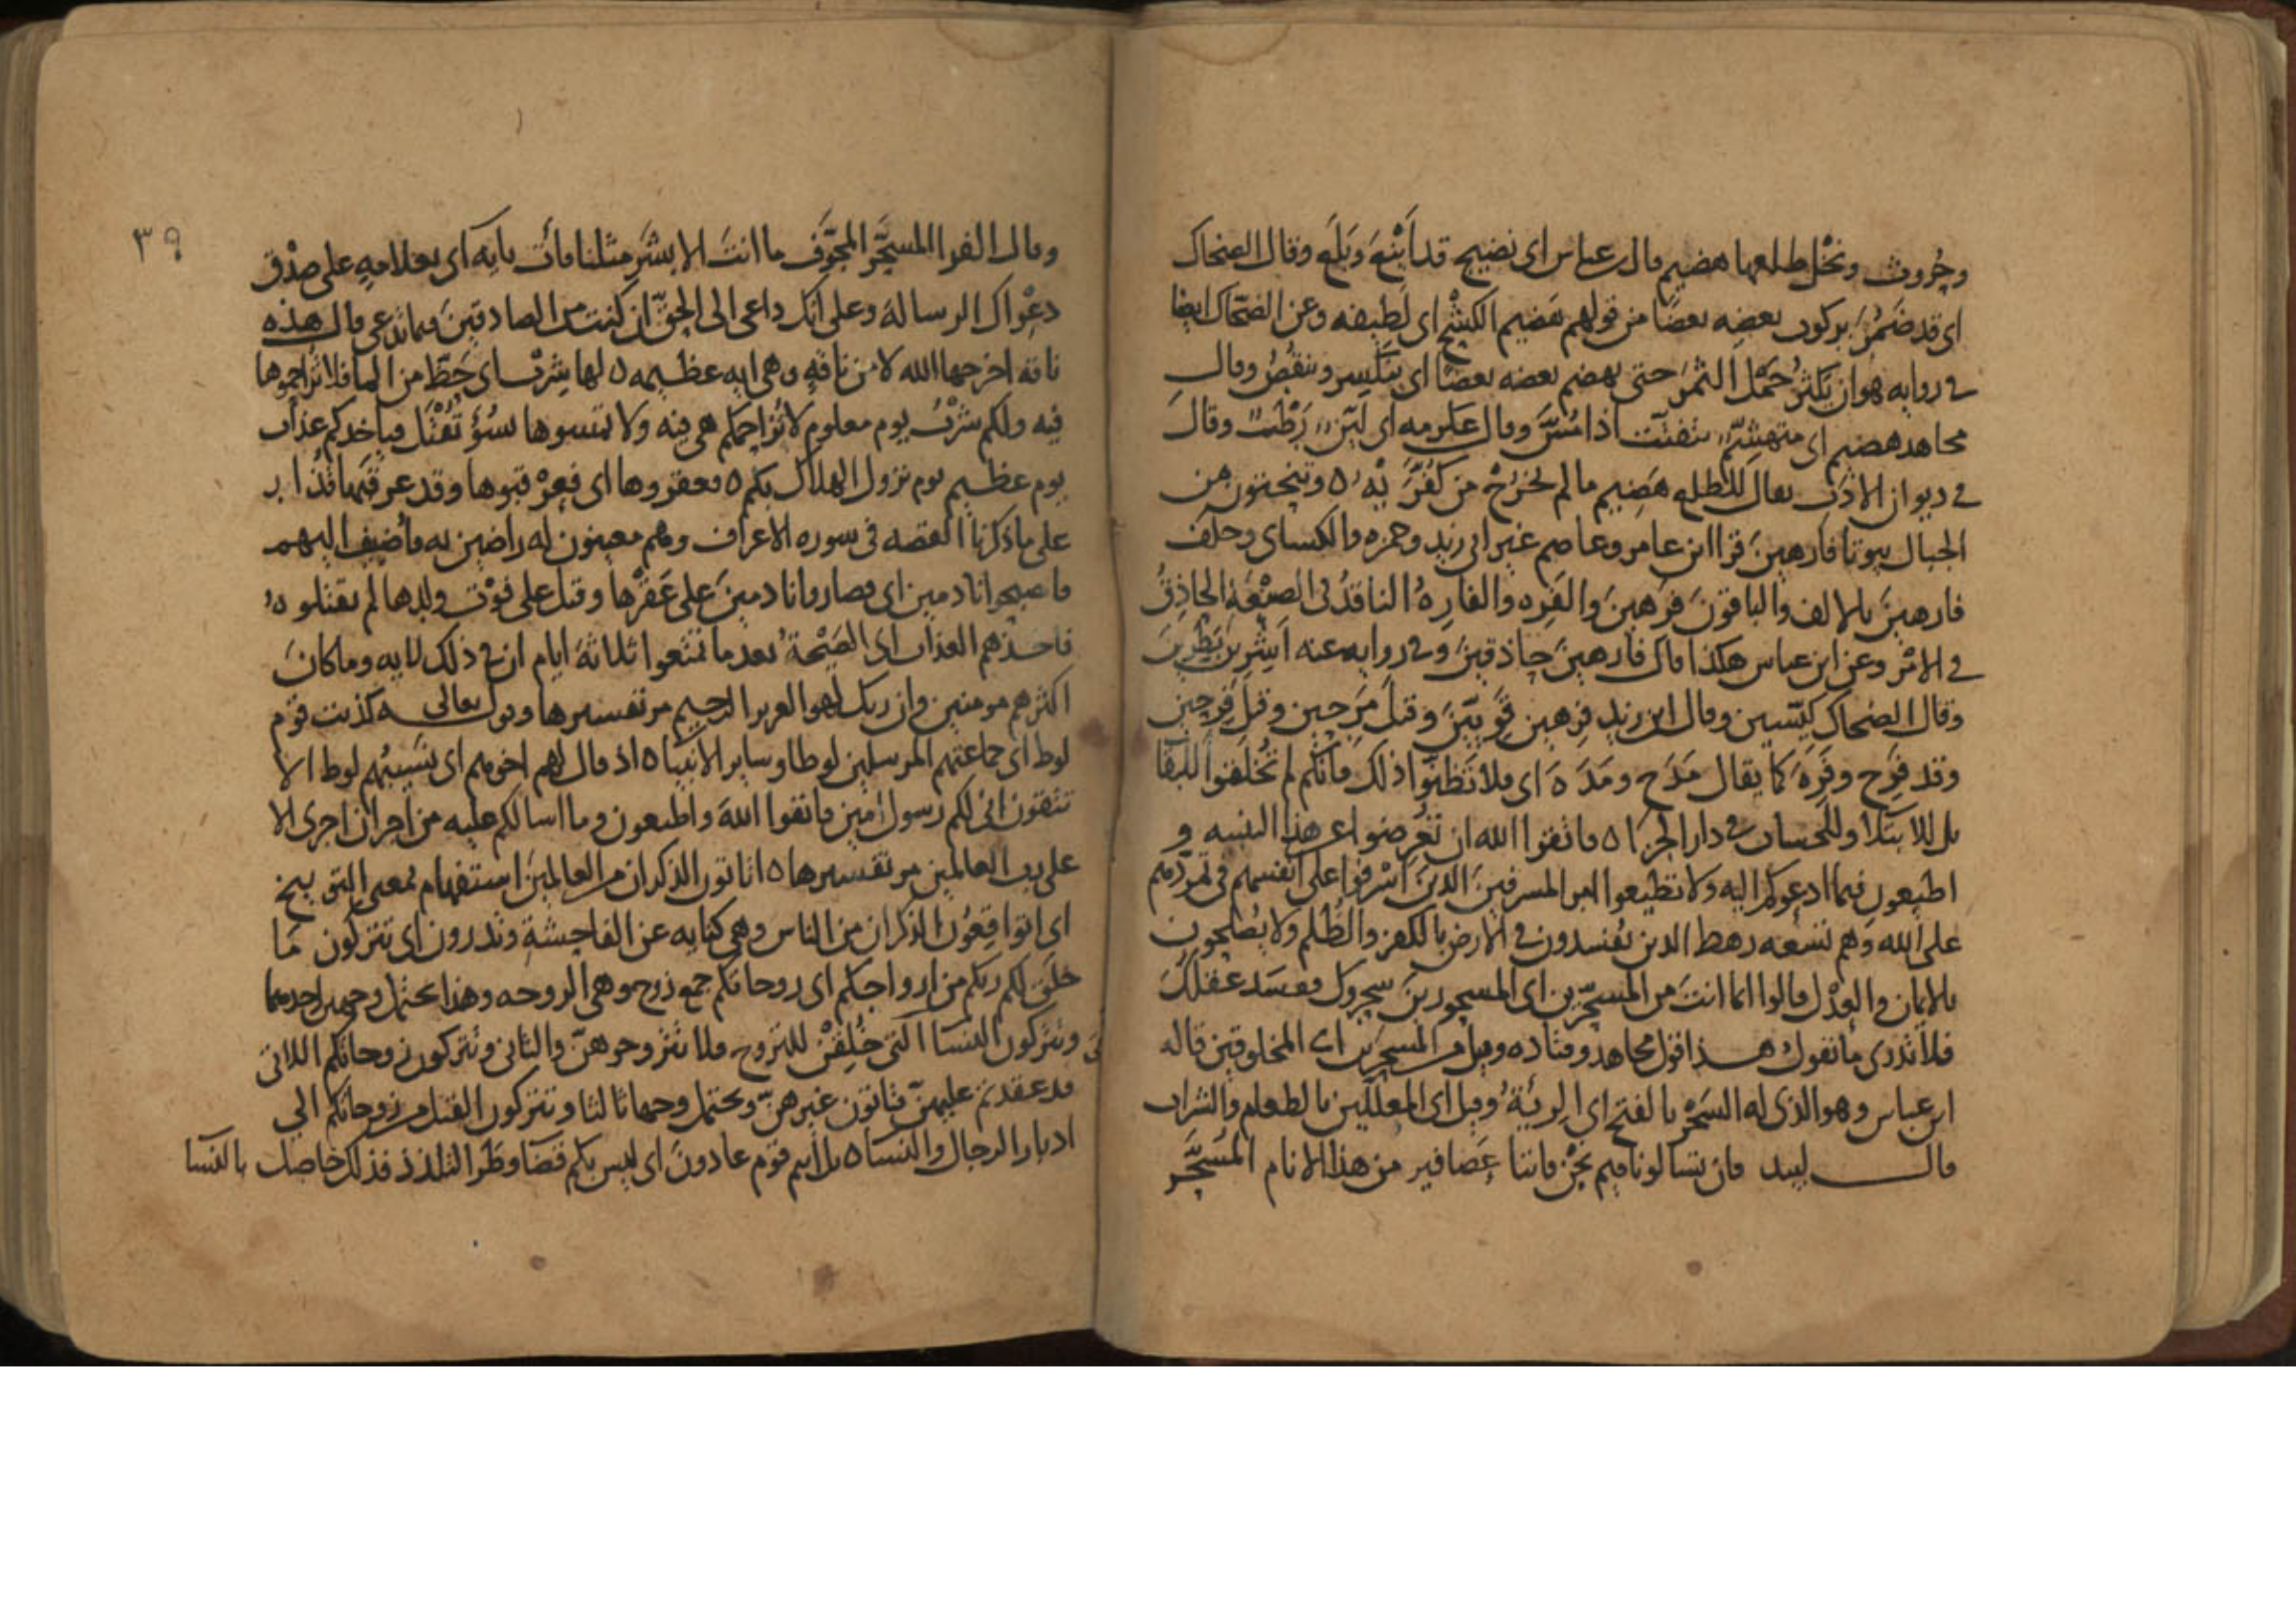 وحُروث ونخْل طلعها هضيم قال ابن عباس اى نضيج قد اَيْنَعَ وبَلَغ وقال الضحاك
اى قد ضَمُرَ بركوب بعضِه بعضًا من قولهم هَضِيم الكشْح اى لَطِيفه وعن الضحّاك ايضا
فى روايه هو ان يكثُر حَمْل الثمرَ حتى يهضم بعضه بعضًا اى يتكسر وينقُصُ وقال
مجاهد هضيم اى متهشِّم يتفتت اذا مُسَّ وقال عكرمه اى لَيِّن رَطْبٌ وقال
فى ديوان الادب يقال للطلع هَضِيم ما لم يخرُج من كُفُرَّيْه ٥ وتنحتون من
الجبال بيوتا فارهين قرا ابن عامر وعاصم غير ابى زيد وحمزه والكساى وخلف
فارهينَ بالالف والباقونَ فرهينَ والفَرِه والفارِهُ الناقدُ فى الصَّنْعَة الحاذقُ
فى الامْر وعن ابن عباس هكذا قال فارهينَ حاذقينَ وفى روايه عنه اَشِرِينَ بَطِرِينَ
وقال الضحاك كَيِّسين وقال ابن زيد فرِهين قَوِيّينَ وقيلَ مَرِحين وقيل فَرِحين
وقد فَرِحَ وفَرِهَ كما يقال مَدَح ومَدَهَ اى فلا تَظنّوا ذلك فانكم لم تُخْلَقوا للبقا
بل للابتلا وللحساب فى دار الجزا ٥ فاتقوا الله ان تُعْرِضوا عن هذا التنبيه و
اطيعون فيما ادعوكم اليه ولا تطيعوا امر المسرفينَ الذينَ اَسْرفوا على انفسهم فى تمرّدهم
على الله وهم تسعه رهط الذين يُفسدون فى الارض بالكفر والظُّلم ولا يُصْلحون
بالايمان والعدْل قالوا انما انتَ من المسحّرين اى المسحورينَ سحروك ففسَد عقلكَ
فلا تدرى ما تقول هذا قول مجاهد وقتاده وقيل من المسحرين اى المخلوقين قاله
ابن عباس وهو الذى له السَحْر بالفتح اى الرِئَةُ وقيل اى المعلَّلين بالطعام والشراب
قال لبيد فان تسالونا فيم نحْن فاننا عَصَافير من هذا الانام المُسَحَّر
٣٩
وقال الفرا المسحَّر المجوَّف ما انتَ الا بشَر مثلنا فات بايه اى بعلامهٍ على صدْق
دعْواك الرسالهَ وعلى انّك داعى الى الحقّ ان كنت من الصادقينَ فيما تدعى قال هذه
ناقه اخرجها الله لا من ناقهٍ وهى ايه عظيمه ٥ لها شِرْب اى حَظّ من الما فلا تزاحموها
فيه ولكم شرْبُ يوم معلوم لا تُزاحمكم هى فيه ولا تمسوها بسُوْءٍ تُقتَل فياخذكم عذاب
يوم عظيم يوم نزول الهلاك بكم ٥ فعقروها اى فعرْقبوها وقد عرقَبَها قُدَار
على ما ذكرنا القصه فى سوره الاعراف وهم معينون له راضين به فاُضيفَ اليهم
فاصبحوا نادمين اى فصاروا نادمينَ على عَقْرها وقيل على فوْت ولدها لم يقتلوه
فاخذهم العذاب اى الصَيْحةُ بعد ما تمتعوا ثلاثهَ ايام ان فى ذلك لايه وما كانَ
اكثرهم مومنين وان ربك لهو العزيز الرحيم مر تفسيرها وقوله تعالى كذبت قوم
لوط اى جماعتهم المرسلين لوطا وساير الانبيا ٥ اذ قال لهم اخوهم اى نسيبُهم لوط الا
تتقون انى لكم رسول امين فاتقوا اللهَ واطيعون وما اسالكم عليه من اجر ان اجرى الا
على رب العالمين مر تفسيرها ٥ اتاتون الذكران من العالمينَ استفهام بمعنى التوبيخ
اى اتواقِعُون الذكران من الناس وهى كنايه عن الفاحشةِ وتذرون اى تتركون مَا
خلق لكم ربكم من ازواجكم اى زوجاتكم جمع زوج وهى الزوجه وهذا يحتمل وجهين احدهما
وتتركون النسا اللاتى خُلِقْنَ للتزوج فلا تتزوجوهنّ والثانى وتتركون زوجاتكم اللاتى
قد عقدتم عليهنّ فتاتون غيرهنّ ويحتمل وجها ثالثا وتتركون القبل من زوجاتكم الى
ادبار الرجال والنسا ٥ بل انتم قوم عادونَ اى ليس بكم قضآ وطَر التلذذ فذلك حاصل بالنسا